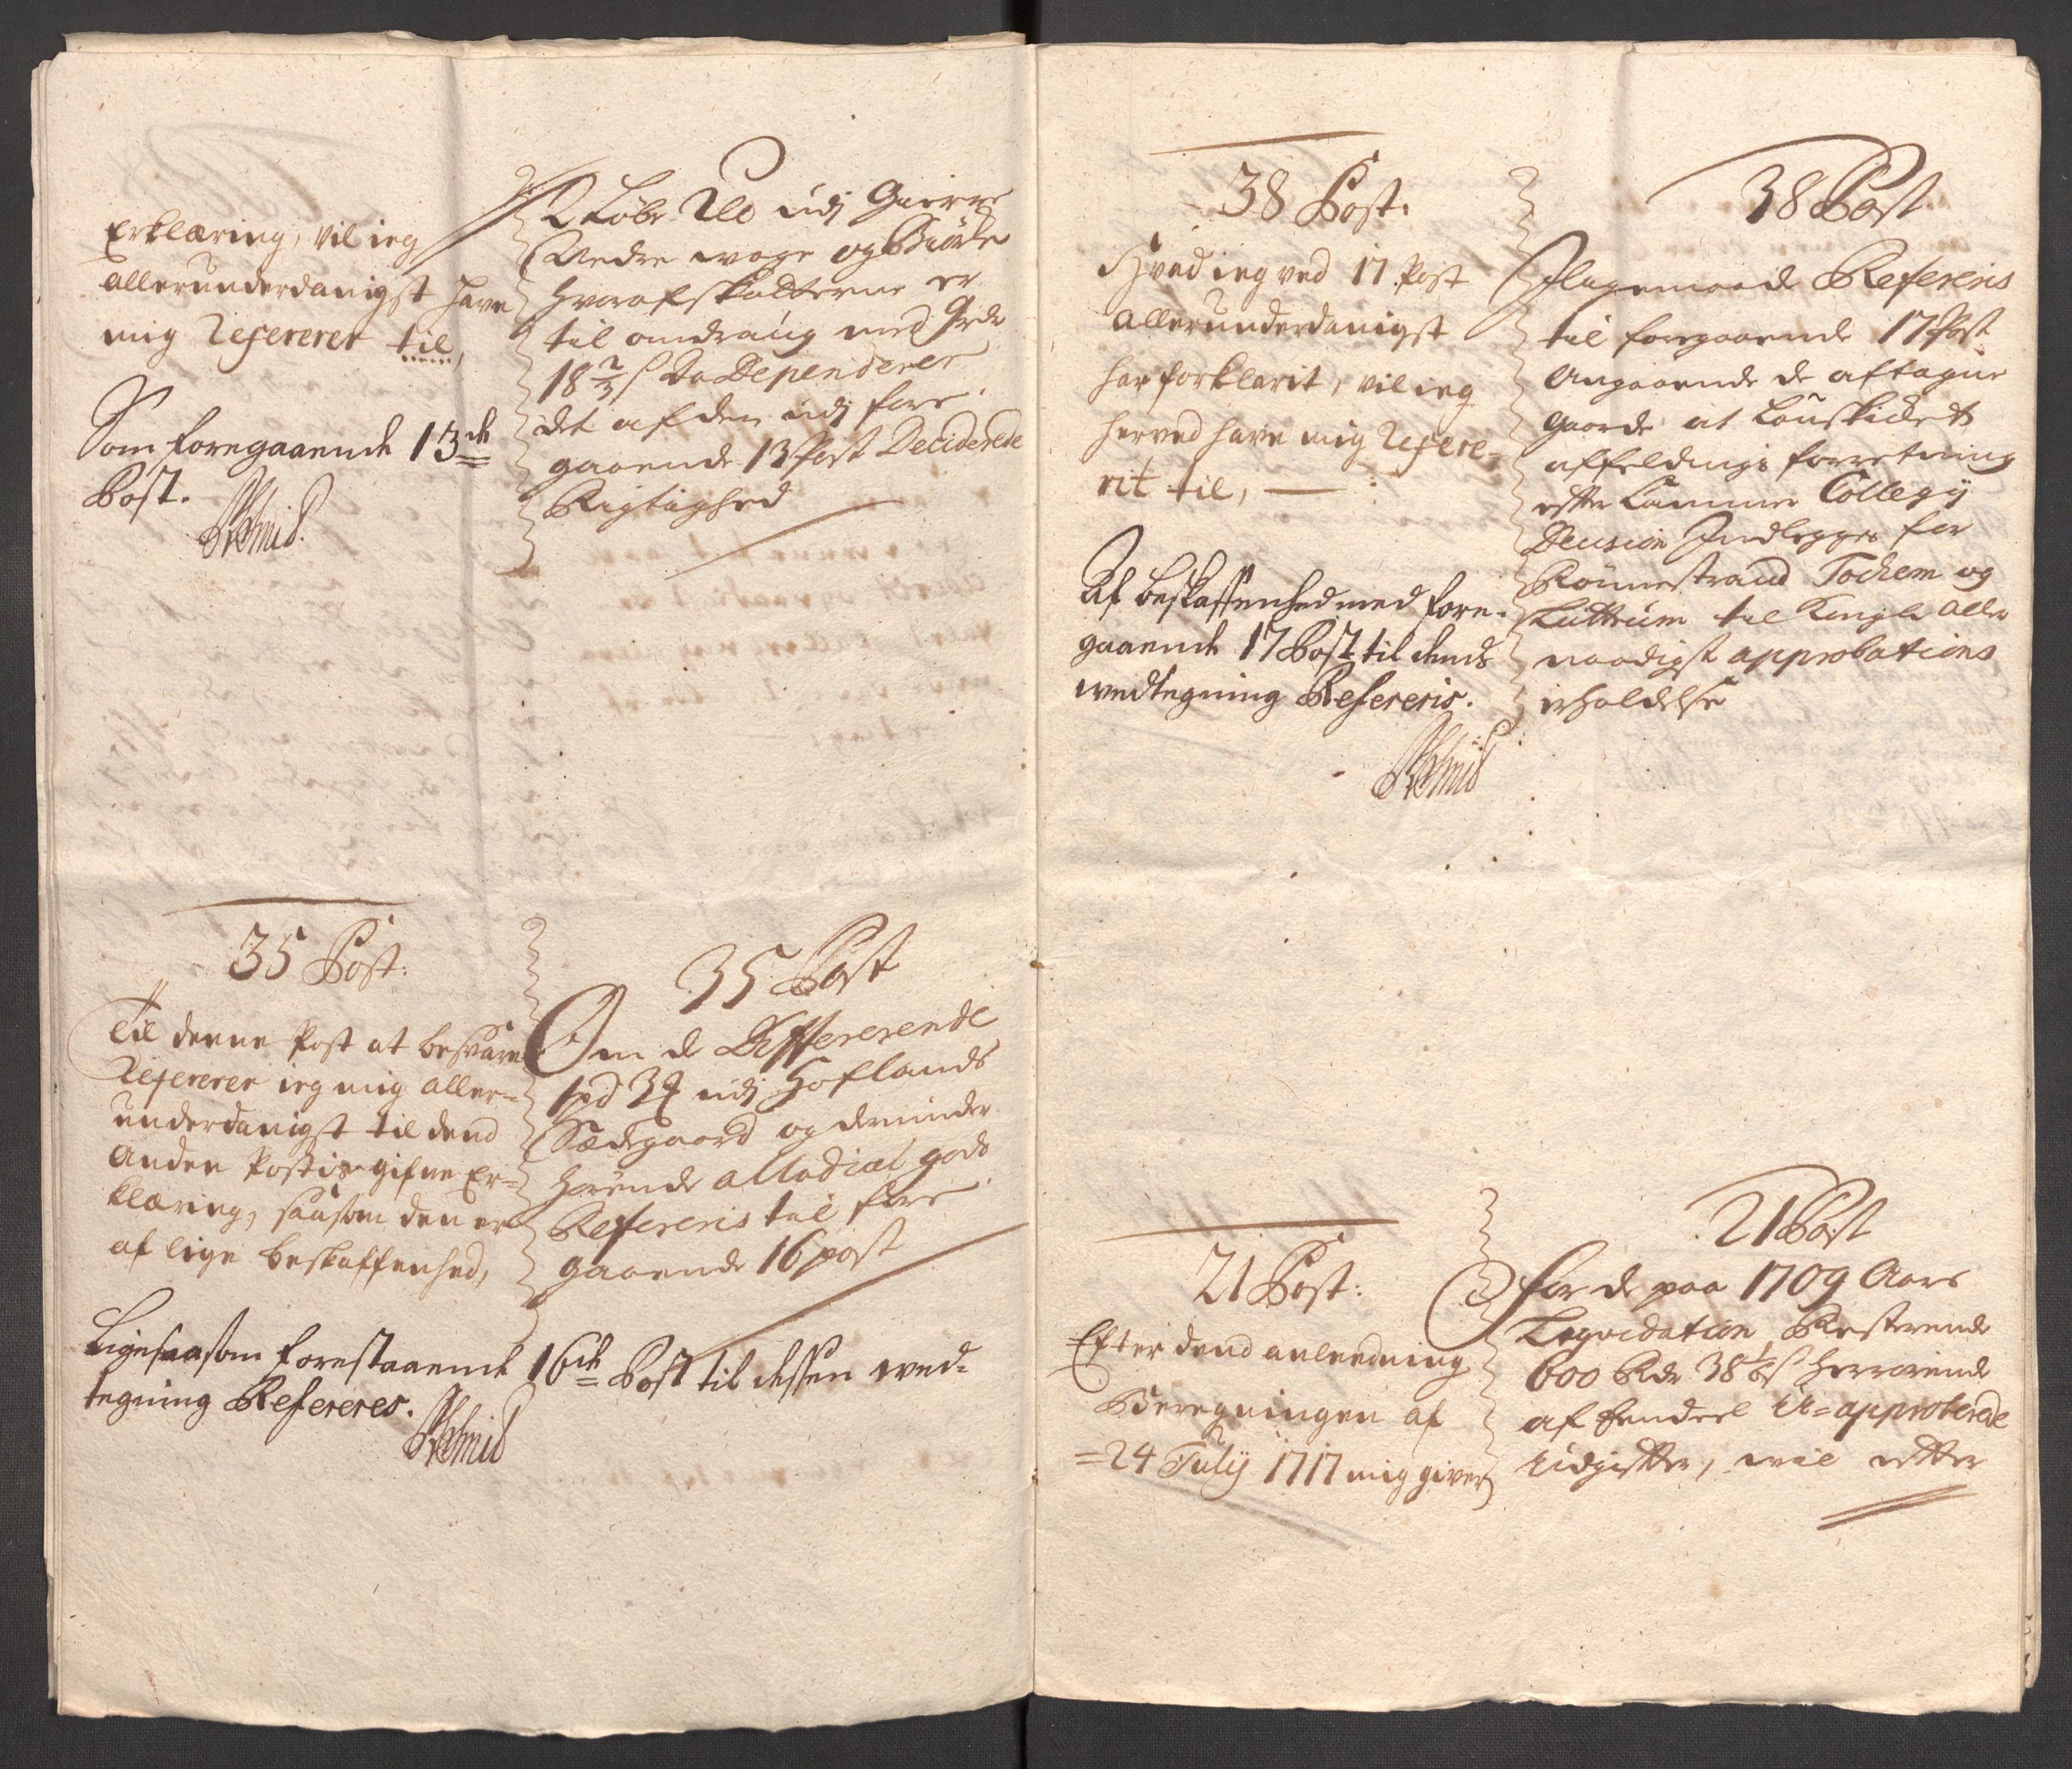 Erklæring, vil ieg
allerunderdanigst have
mig Refereret til,
Som foregaaende 13de
Post.
2 Løbr udj
Nedre wage og
hvoraf skatterne er
til andraug med
18 2/3 s da Dependerer
det af den udj fore
gaaende 13 Post Deciderede
Rigtighed
35 Post:
Til denne Post at besvare
Refererer ieg mig aller-
underdanigst til dend
anden Postis gifne Er-
klæring, saasom den er
af lige beskaffenhed,
Ligesaasom forestaaende 16de Post til dessen wed-
tegning Refereres.
35 Post
Om de Differerende
1 pd 3 udj Hoflands
Sædegaard og derunder
hørende allodial gods
Refereris til fore
gaaende 16 post
38 Post:
Hvad ieg ved 17 Post
allerunderdanigst
har forklarit, vil ieg
herved have mig Refere-
rit til,
Af beskaffenhed med fore-
gaaende 17 Post til dends
wedtegning Refereris.
38 Post
Refereris
til foregaaende 17 Post
Angaaende de aftagne
gaarde at
affeldings forretning
efter Cammer Collegij
Decision Indlegges for
Rønnestrand Tochem og
Luttrum til Kongl: aller
naadigst approbations
erholdelse
21 Post:
Efter dend anleedning
Beregningen af
24 Julij 1717 mig giver
21 Post
for de paa 1709 Aars
Liqvidation Resterende
600 Rdr 38 s herrørende
af endeel U-approberede
Udgifter, wil efter